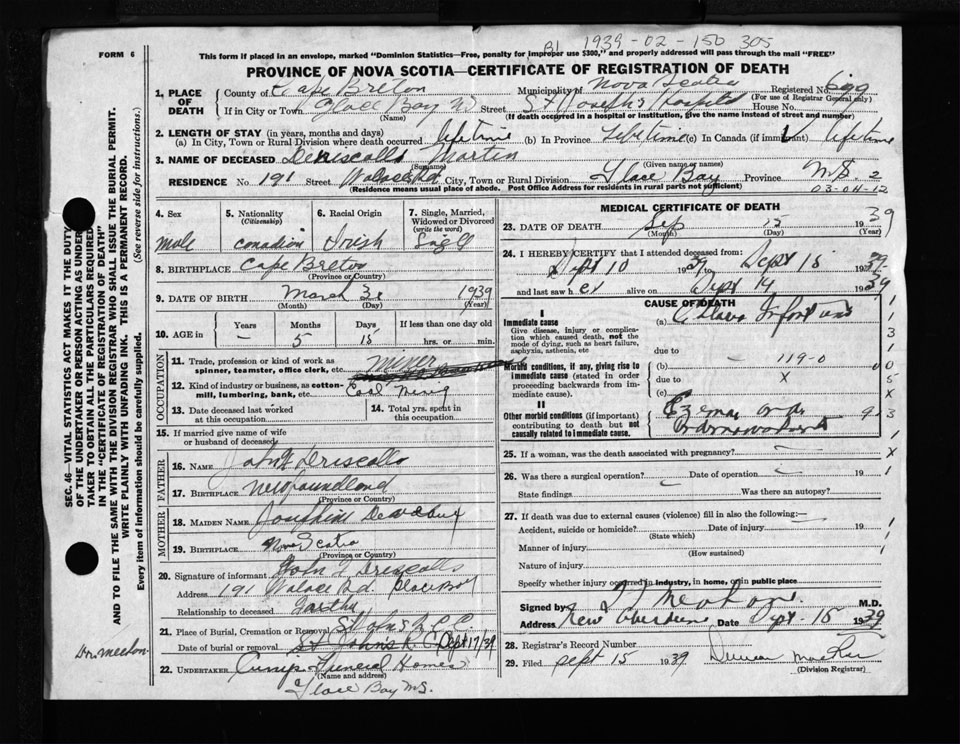 B1 1939-02-150 305
FORM 6
This form if placed in an envelope, marked "Dominion Statistics—Free, penalty for improper use $300," and properly addressed will pass through the mail "FREE"
PROVINCE OF NOVA SCOTIA—CERTIFICATE OF REGISTRATION OF DEATH
SEC. 46—VITAL STATISTICS ACT MAKES IT THE DUTY
OF THE UNDERTAKER OR PERSON ACTING AS UNDER
TAKER TO OBTAIN ALL THE PARTICULARS REQUIRED
IN THE "CERTIFICATE OF REGISTRATION OF DEATH"
AND TO FILE THE SAME WITH THE DIVISION REGISTRAR WHO SHALL ISSUE THE BURIAL PERMIT.
WRITE PLAINLY WITH UNFADING INK. THIS IS A PERMANENT RECORD.
Every item of information should be carefully supplied. (See reverse side for instructions.)
1. PLACE OF DEATH
County of Cape Breton Municipality of Nova Scotia Registered No. 699
(For use of Registrar General only)
If in City or Town Glace Bay Street St Joseph's Hospital House No.
(Name) (If death occurred in a hospital or institution, give the name instead of street and number)
2. LENGTH OF STAY (in years, months and days)
(a) In City, Town or Rural Division where death occurred lifetime (b) In Province lifetime (c) In Canada (if immigrant) lifetime
3. NAME OF DECEASED Driscoll Martin
(Surname) (Given name or names)
RESIDENCE No 191 Street City, Town or Rural Division Glace Bay Province N.S. 2
(Residence means usual place of abode. Post Office Address for residents in rural parts not sufficient)
03-04-12
4. Sex
male
5. Nationality
(Citizenship)
Canadian
6. Racial Origin
Irish
7. Single, Married, Widowed or Divorced
(write the word)
Single
8. BIRTHPLACE Cape Breton
(Province or Country)
9. DATE OF BIRTH March 31 1939
(Month) (Day) (Year)
10. AGE in Years Months Days If less than one day old
— 5 15 hrs. or min.
OCCUPATION
11. Trade, profession or kind of work as spinner, teamster, office clerk, etc. miner
12. Kind of industry or business, as cotton-mill, lumbering, bank, etc. Coal Mining
13. Date deceased last worked at this occupation
14. Total yrs. spent in this occupation
15. If married give name of wife or husband of deceased
FATHER
16. NAME John J Driscoll
17. BIRTHPLACE Newfoundland
(Province or Country)
MOTHER
18. MAIDEN NAME Josephine
19. BIRTHPLACE Nova Scotia
(Province or Country)
20. Signature of informant John J Driscoll
Address 191 Wallace Rd. Glace Bay
Relationship to deceased Father
21. Place of Burial, Cremation or Removal St Johns
Date of burial or removal Sept 17/39
22. UNDERTAKER Funeral Home
(Name and address)
Glace Bay N.S.
MEDICAL CERTIFICATE OF DEATH
23. DATE OF DEATH Sep 15 1939
(Month) (Day) (Year)
24. I HEREBY CERTIFY that I attended deceased from:
Sept 10 1939 to Sept 15 1939
and last saw h alive on Sept 14 1939
CAUSE OF DEATH
I
Immediate cause
Give disease, injury or complication which caused death, not the mode of dying, such as heart failure, asphyxia, asthenia, etc
(a) Cholera Infantum
due to
Morbid conditions, if any, giving rise to immediate cause (stated in order proceeding backwards from immediate cause).
(b) 119-0
due to X
(c)
II
Other morbid conditions (if important) contributing to death but not causally related to immediate cause.
Eczema
25. If a woman, was the death associated with pregnancy?
26. Was there a surgical operation? Date of operation 19
State findings Was there an autopsy?
27. If death was due to external causes (violence) fill in also the following:
Accident, suicide or homicide? Date of injury 19
(State which)
Manner of injury
(How sustained)
Nature of injury
Specify whether injury occurred in industry, in home, or in public place
Signed by M.D.
Address New Aberdeen Date Sept. 15 1939
28. Registrar's Record Number
29. Filed Sept 15 1939 Duncan
(Division Registrar)